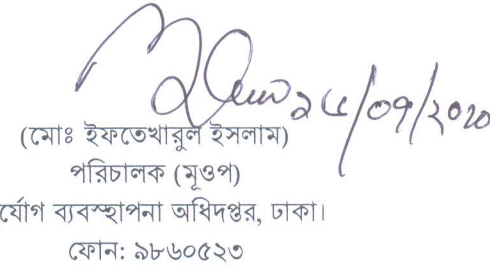 (মোঃ ইফতেখারুল ইসলাম)
পরিচালক (মূওপ)
র্যোগ ব্যবস্থাপনা অধিদপ্তর, ঢাকা।
ফোন: ৯৮৬০৫২৩